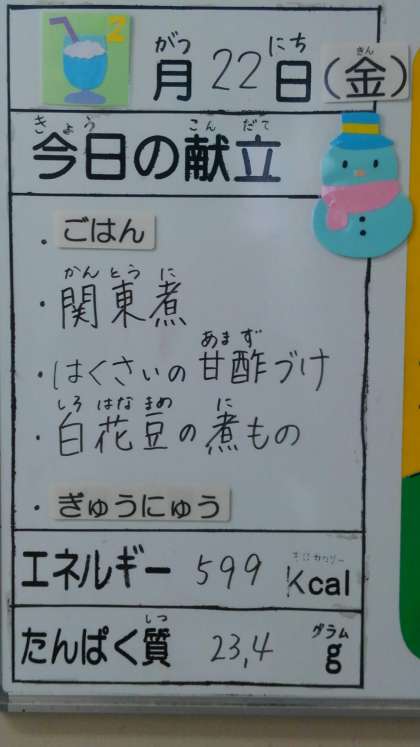 2
がつ にち きん
月 22 日 (金)
きょう こん だて
今日の献立
・ごはん
かん とう に
・関東煮
あま ず
・はくさいの甘酢づけ
しろ はな まめ に
・白花豆の煮もの
・ぎゅうにゅう
キロカロリー
エネルギー 599 kcal
しつ グラム
たんぱく質 23,4 g